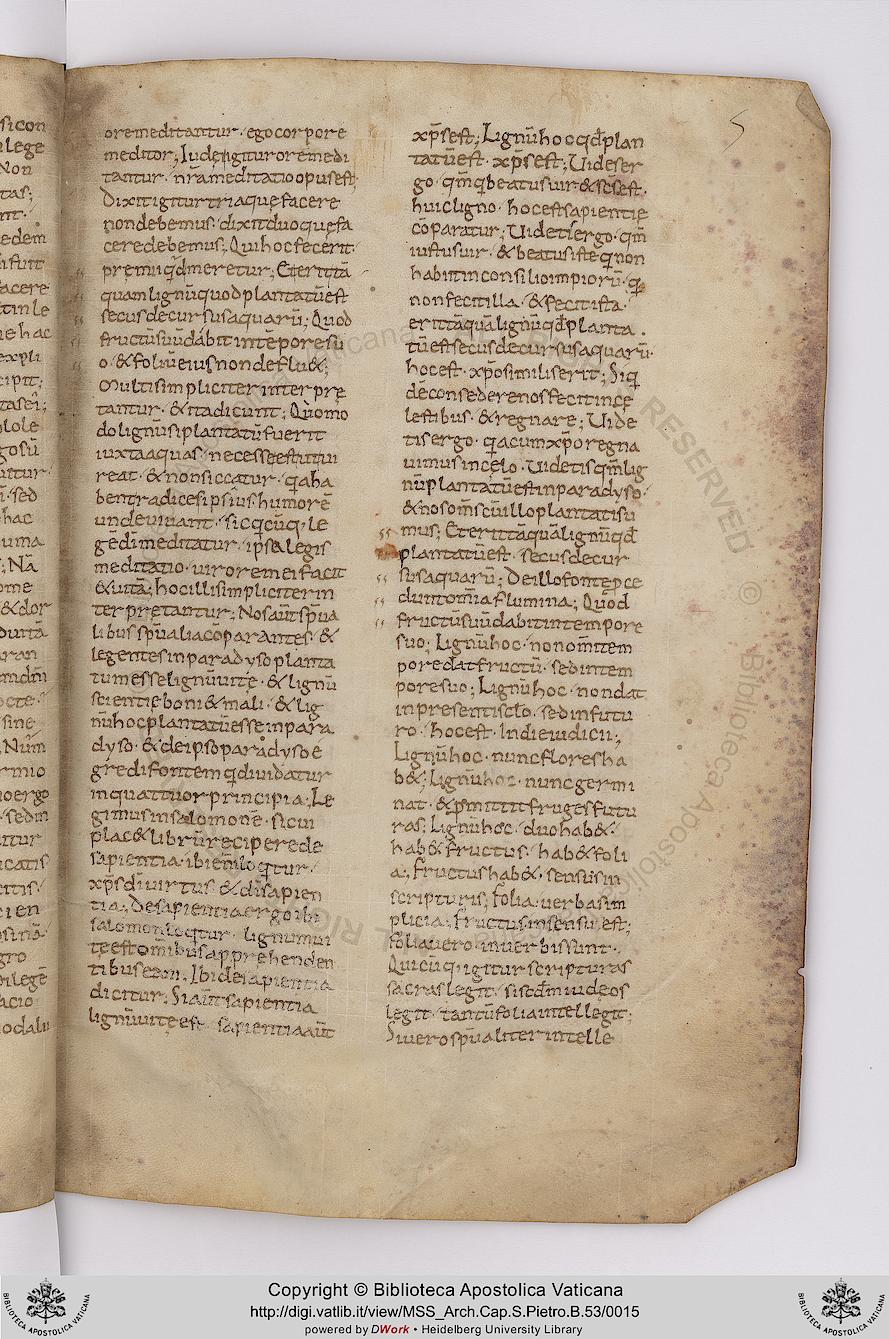 oremeditantur · egocorpore
meditor; Iudęiigiturorēmedi
tantur · nrāmeditatioopusest;
Dixitigiturtriaquęfacere
nondebemus · dixitduoquęfa
ceredebemus; Quihocfecerit ·
premiiqđmeretur; Eterittā
quamlignūquodplantatūest
secusdecursusaquarū; Quod
fructūsuūdabitintēporesu
o · &foliūeiusnondeflu&;
Multisimpliciterinterprę
tantur · &itadicunt; Quomo
dolignūsiplantatūfuerit
iuxtaaquas · necesseestutui
reat · &nonsiccatur · qaha
bentradicesipsius humorē
undeuiuant · sicqcūq; le
gēdimeditatur · ipsalegis
meditatio · uiroremeifacit
&uitā; hocillisimpliciterin
terpretantur; Nosaūtspūa
libusspūaliacōparantes · &
legentesinparadysoplanta
tumesselignūuitę · &lignū
scientięboni&mali · &lig
nūhocplantatūesseinpara
dyso · &deipsoparadysoe
gredifontemqdiuidatur
inquattuorprincipia; Le
gimusinsalomonē · sicui
plac&librūreciperede
sapientia · ibienīloqtur ·
xpsdīuirtus · &dīsapien
tia; Desapientiaergoibi
salomonloqtur · lignumui
tęestomībusapprehenden
tibuseam · Ibidesapientia
dicitur; Siaūtsapientia
lignūuitęest · sapientiaaūt
xpsest; Lignūhocqđplan
tatūest · xpsest; Uideser
go · qmqbeatusuir&scsest ·
huicligno · hocestsapientię
cōparatur; Uidetiergo · qm
iustusuir · &beatusisteqnon
habiitinconsilioimpiorū · q
nonfecitilla · &fecitista ·
erittāquālignūqđplanta
tūestsecusdecursusaquarū ·
hocest · xposimiliserit; Siq
dēconsederenosfecitincę
lestibus · &regnare; Uide
tisergo · qacumxporegna
uimusincęlo · Uidetisqmlig
nūplantatūestinparadyso ·
&nosomscūilloplantatisu
mus; Eterittāquālignūqđ
plantatūest · secusdecur
susaquarū; Deillofontepce
duntomīaflumina; Quod
fructūsuūdabitintempore
suo; Lignūhoc · nonomītem
poredatfructū · sedintem
poresuo; Lignūhoc · nondat
inpresentisclo · sedinfutu
ro · hocest · Indieiudicii;
Lignūhoc · nuncfloresha
b&; Lignūhoc · nuncgermi
nat · &pmittitfrugesfutu
ras; Lignūhoc · duohab& ·
hab&fructus · hab&foli
a; fructushab& · sensusin
scripturis; folia · uerbasim
plicia; fructusinsensu est;
foliauero · inuerbissunt ·
Quicūq;igiturscripturas
sacraslegit · sisecđmiudęos
legit · tantūfoliaintellegit ·
Siuerospūaliterintelle
5
Copyright © Biblioteca Apostolica Vaticana
http://digi.vatlib.it/view/MSS_Arch.Cap.S.Pietro.B.53/0015
powered by DWork • Heidelberg University Library